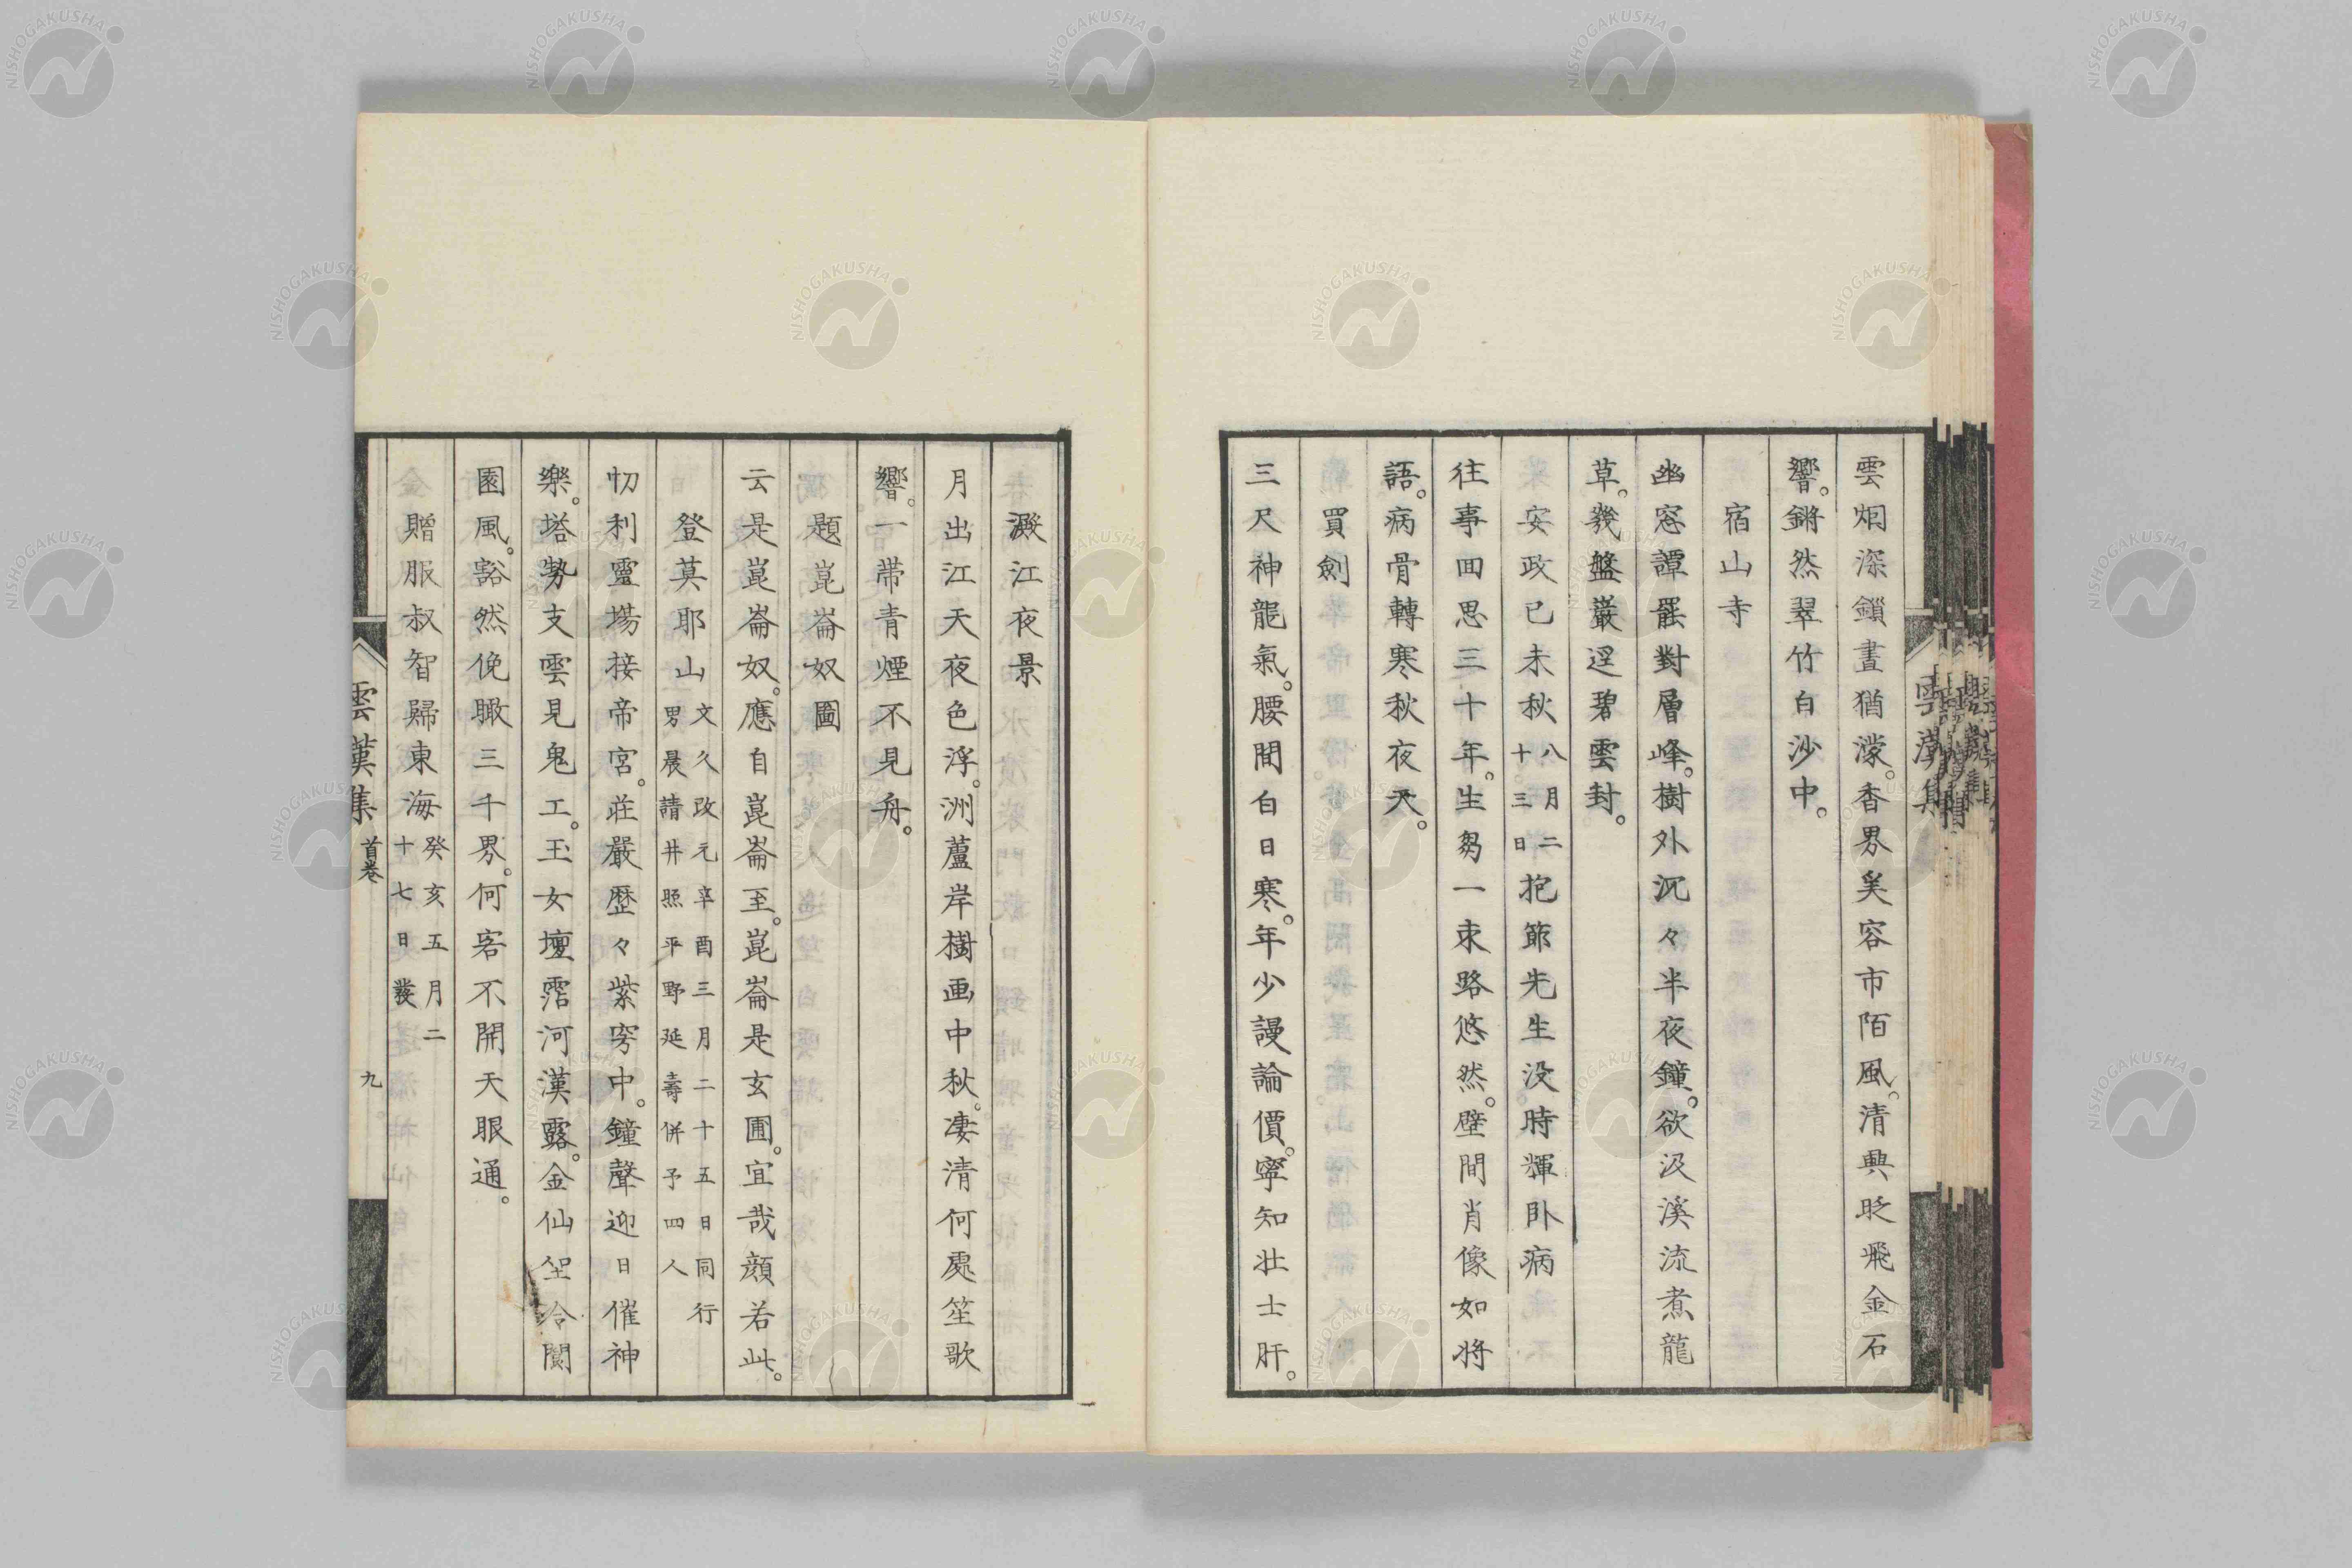 雲烟深鎖晝猶濛。香界奚容市陌風。清興眨飛金石
響。鏘然翠竹白沙中。
宿山寺
幽窓譚罷對層峰。樹外沉々半夜鐘。欲汲溪流煮龍
草。幾盤巖逕碧雲封。
安政己未秋八月二十三日抱節先生没時輝卧病
往事回思三十年。生芻一束路悠然。壁間肖像如将
語。病骨轉寒秋夜天。
買劍
三尺神龍氣。腰間白日寒。年少謾論價。寧知壮士肝。
澱江夜景
月出江天夜色浮。洲蘆岸樹画中秋。凄清何處笙歌
響。一帯青煙不見舟。
題崑崙奴圖
云是崑崙奴。應自崑崙至。崑崙是玄圃。宜哉顔若此。
登莫耶山文久改元辛酉三月二十五日同行男晨請井照平野延壽併予四人
忉利靈場接帝宮。荘嚴歴々紫穹中。鐘聲迎日催神
樂。塔勢支雲見鬼工。玉女壇霑河漢露。金仙坐冷闐
園風。豁然俛瞰三千界。何客不開天眼通。
贈服叔智歸東海癸亥五月二十七日發
雲漢集 首巻 九
雲漢集
NISHOGAKUSHA